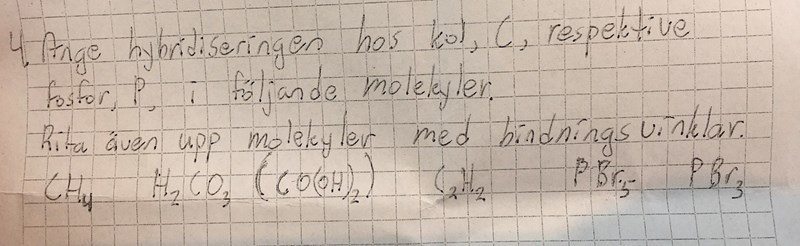 4. Ange hybridiseringen hos kol, C, respektive
fosfor, P, i följande molekyler.
Rita även upp molekyler med bindningsvinklar.
CH₄ H₂CO₃ (CO(OH)₂) C₂H₂ PBr₅ PBr₃